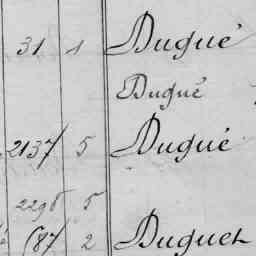 31 1 Dugué
Dugué
2137 5 Dugué
2296 5
687 2 Duguet